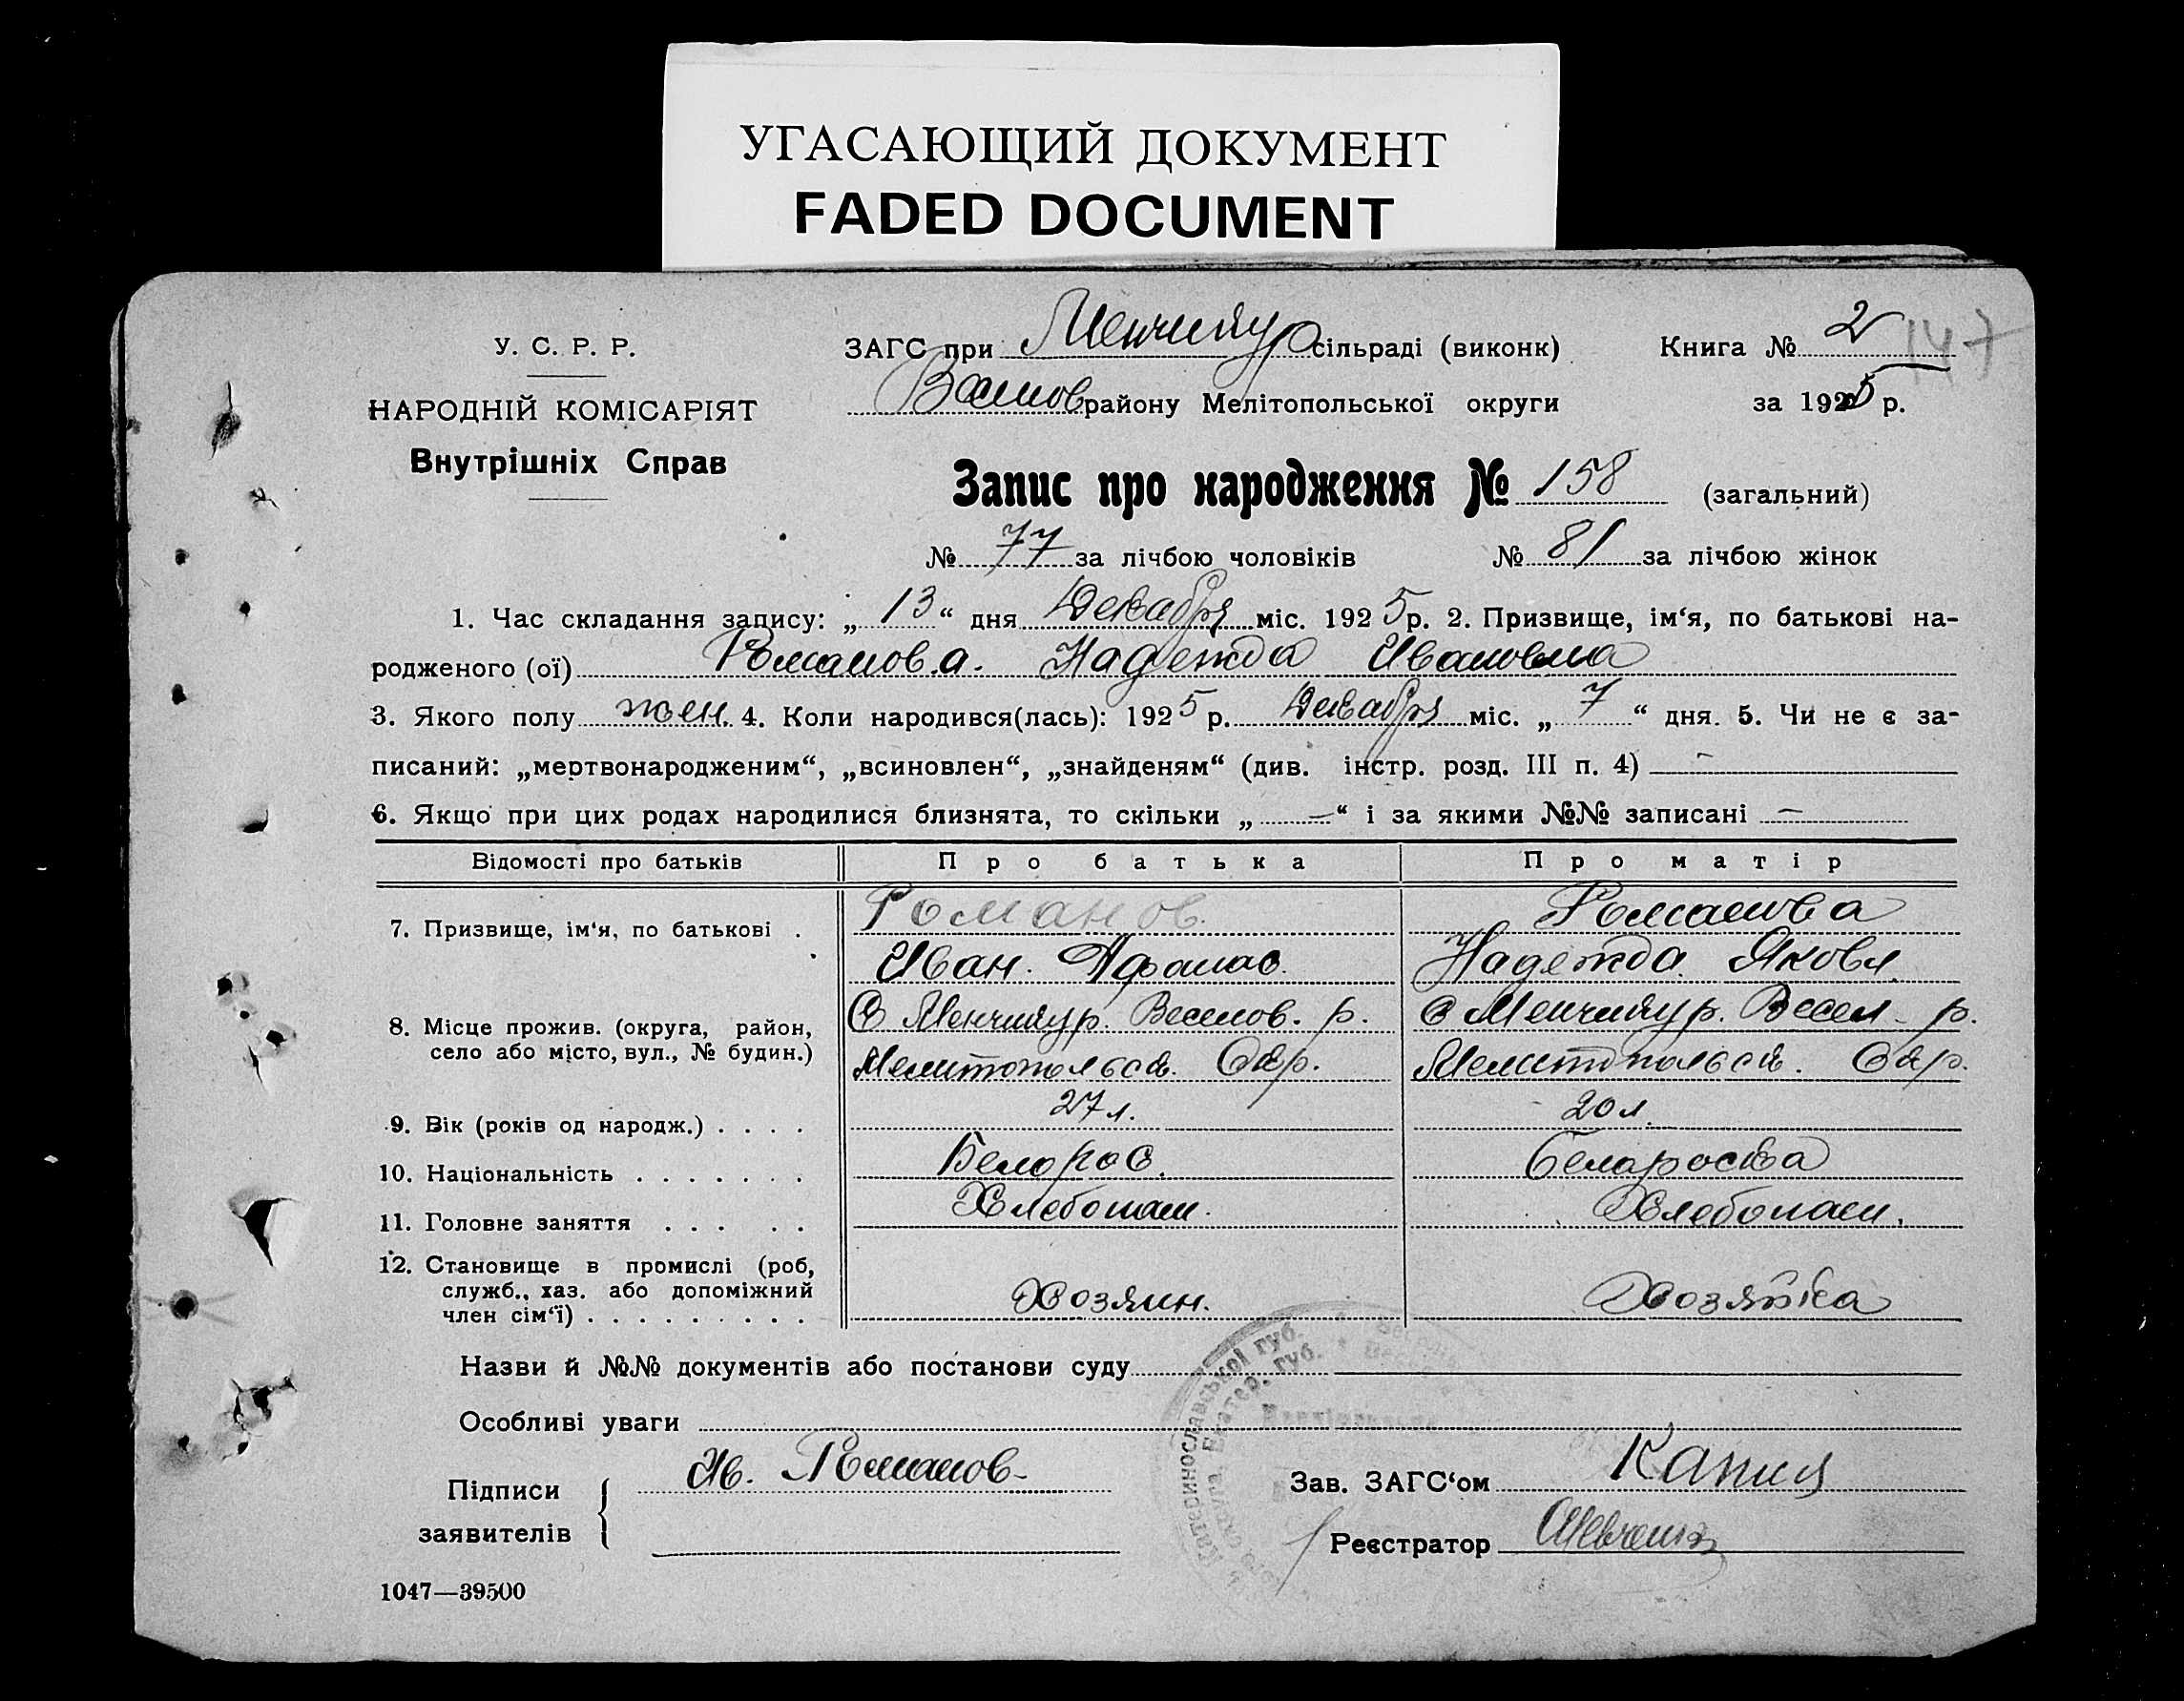 УГАСАЮЩИЙ ДОКУМЕНТ
FADED DOCUMENT
У. С. Р. Р.
НАРОДНІЙ КОМІСАРІЯТ
Внутрішніх Справ
ЗАГС при Менчикур сільраді (виконк)
району Мелітопольської округи
Книга № 2
147
за 1925 р.
Запис про народження № 158 (загальний)
№ 77 за лічбою чоловіків № 81 за лічбою жінок
1. Час складання запису: „ 13 “ дня Декабря міс. 1925 р. 2. Призвище, ім‘я, по батькові на-
родженого (ої) Романова. Надежда Ивановна
3. Якого полу жен. 4. Коли народився(лась): 1925 р. Декабря міс. „ 7 “ дня. 5. Чи не є за-
писаний: „мертвонародженим“, „всиновлен“, „знайденям“ (див. інстр. розд. III п. 4) —
6. Якщо при цих родах народилися близнята, то скільки „ — “ і за якими №№ записані —
Відомості про батьків Про батька Про матір
7. Призвище, ім‘я, по батькові . Романов. Романова
Иван. Афанас. Надежда Яковл.
8. Місце прожив. (округа, район, село або місто, вул., № будин.) С Менчикур. Веселов. р. С Менчикур. Весел. р.
Мелитопольск. Окр. Мелитопольск. Окр.
9. Вік (років од народж.) . . . . 27 л. 20 л.
10. Національність . . . . . . . Белорос. Белароска
11. Головне заняття . . . . . Хлебопаш. Хлебопаш.
12. Становище в промислі (роб, служб., хаз. або допоміжний член сім‘ї) . . . . . . . . . Хозяин. Хозяйка
Назви й №№ документів або постанови суду
Особливі уваги
Підписи заявителів Ив. Романов
Зав. ЗАГС‘ом
Реєстратор
Катеринославської губ.
Екатер. губ.
1047—39500